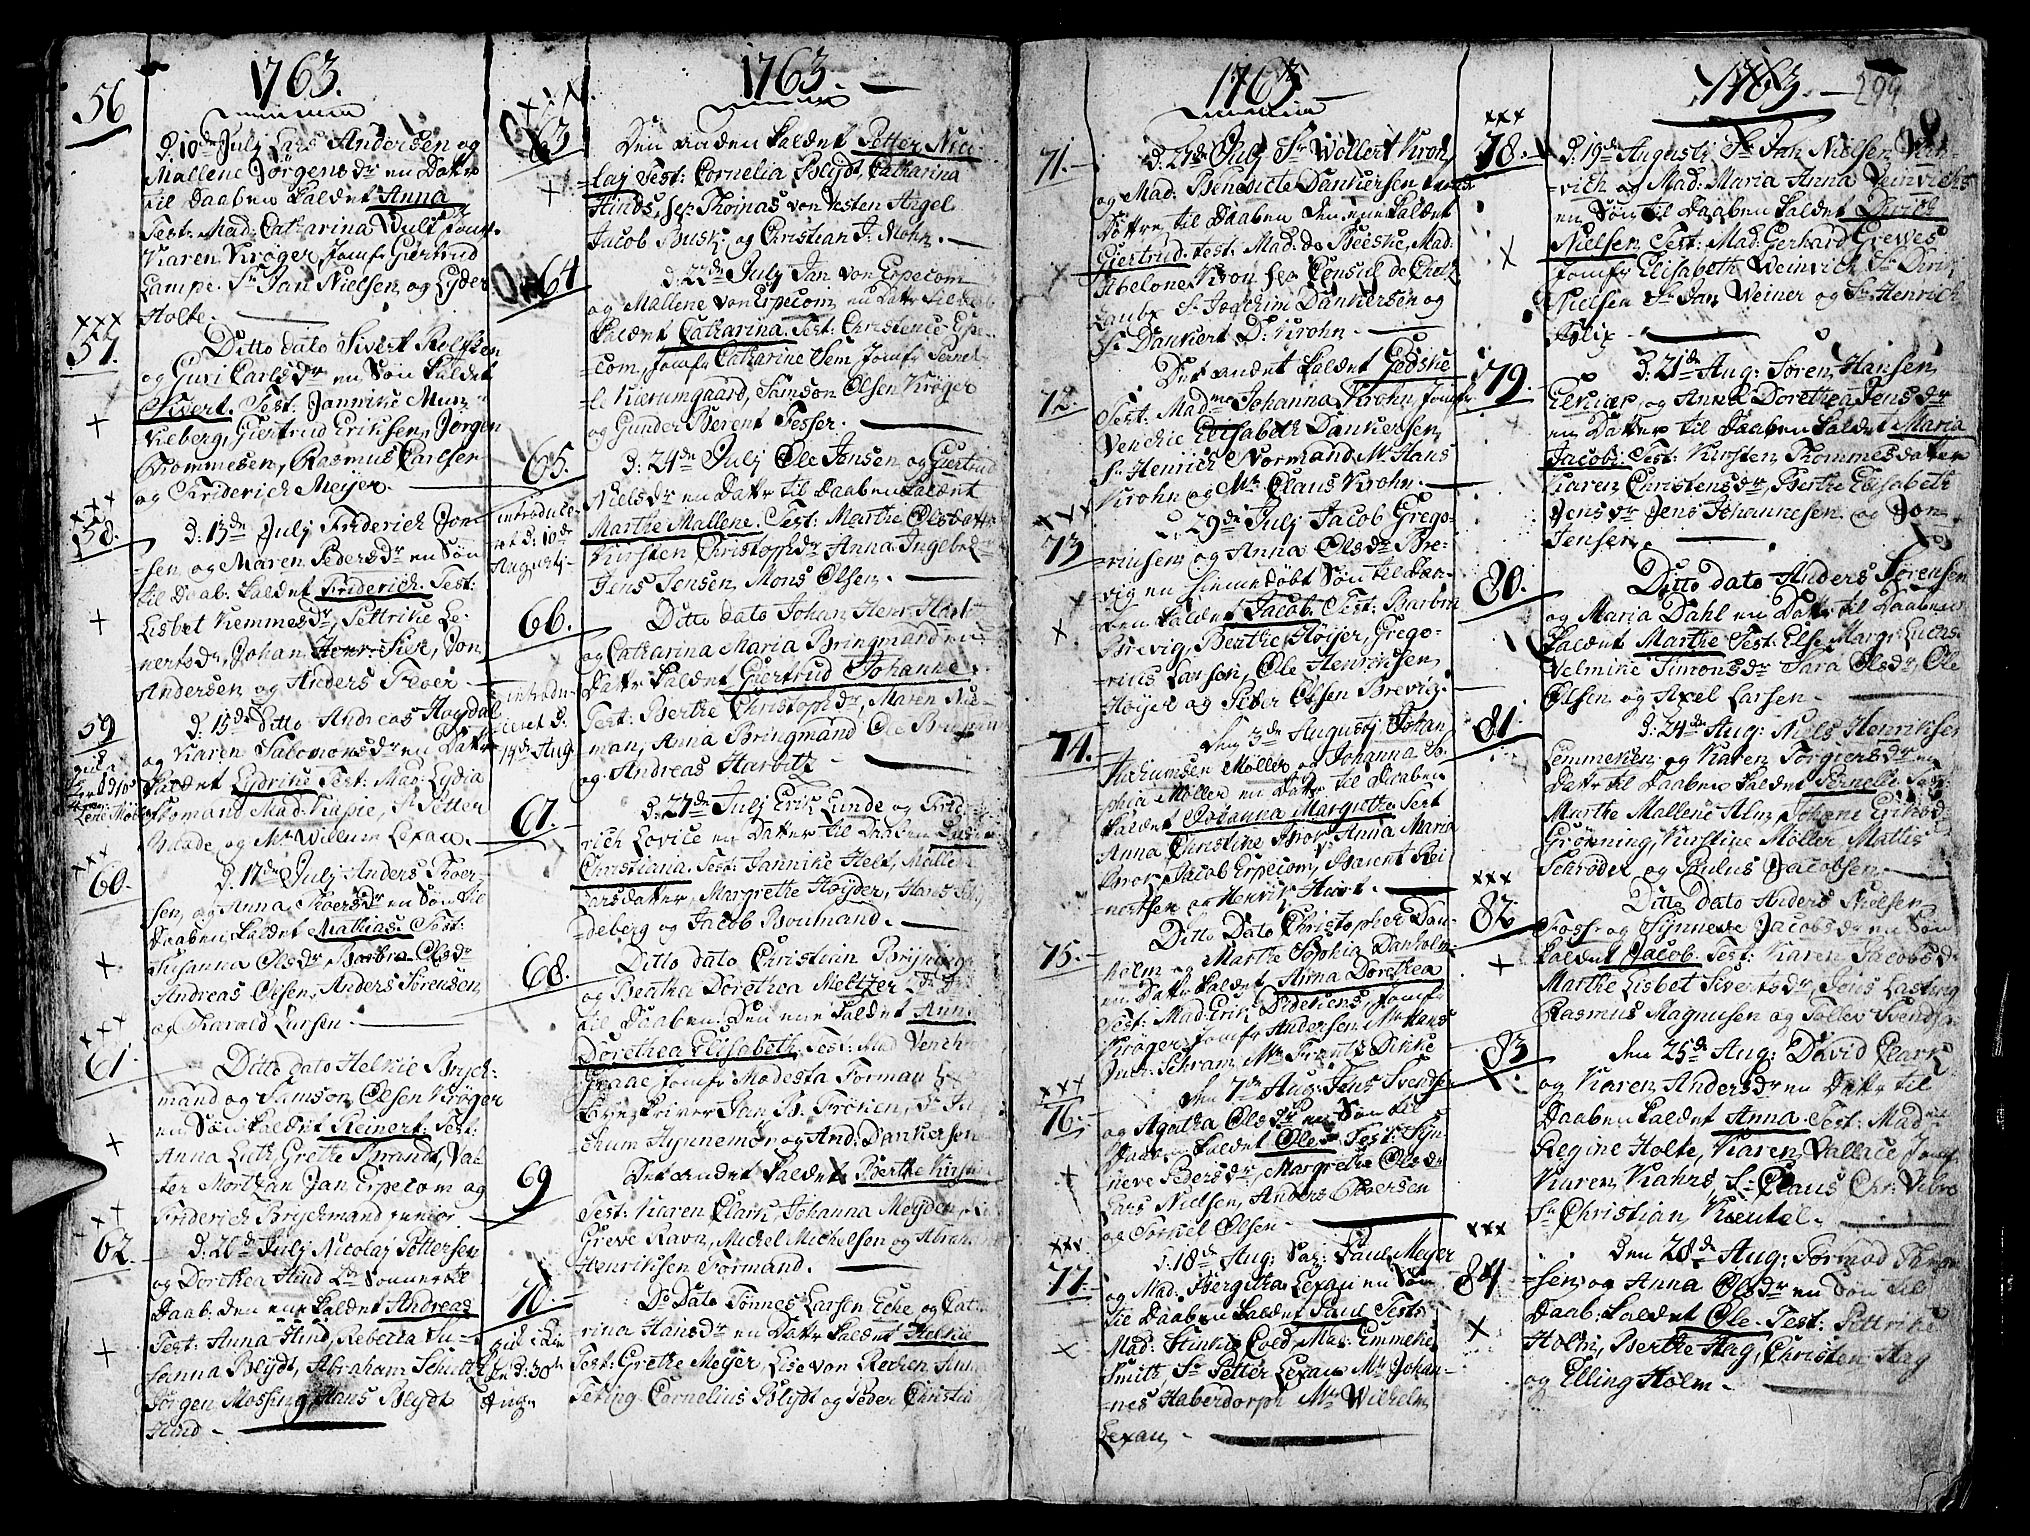 1763.
56
D: 10de July Lars Andersen og
Mallene Jørgensdr en Dattr
til Daaben kaldet Anna
Test: Mad: Catharina Wulf Jomfr
Karen Krøger, Jomfr Giertrud
Lampe. Sr Jan Nielsen og Lyder
Holte.
xxx
57.
Ditto dato Sivert
og Guri Carlsdr en Søn kaldet
Sivert. Test:
Giertrud Eriksen, Jørgen
Trommesen, Rasmus Carlsen
og Friderich Meijer.
xxx
58.
D: 13de July Friderich Jon-
sen og Maren Pedersdr en Søn
til Daab: kaldet Friderich. Test:
Lisbet Kemmesdr, Pettrike Le-
nertsdr, Johan Henr: Sise, Jon
Andersen og Anders
59
D: 15de Ditto Andreas
og Karen Salomonsdr en Dattr
kaldet Lydrike Test: Mad: Lydia
Mad: Sr Petter
og Mr Willum Lexau.
xxx
60.
D: 17de July Anders Toer-
sen og Anna Toersdr en Søn til
Daaben kaldet Mathias. Test:
Susanna Olsdr, Barbra Olsdr
Andreas Olsen, Anders Sørensen
og Harald Larsen.
xxx
61.
Ditto dato Helkie Brych-
mand og Samson Olsen Krøger
en Søn kaldet Reinert. Test:
Anna Luth, Grethe Brandt, Val-
ter Mortzan Jan Erpecom og
Friderich Brychmand junior.
xx
62.
D: 20de July Nicolaj Pettersen
og Dorthea Hind 2de Sønner til
Daab: den ene kaldet Andreas
Test: Anna Hind, Rebecka Su-
sanna Blydt, Abraham Schultz
Jørgen Mossing, Hans Blydt
Hind.
1763.
63
Den anden kaldet Petter Nic-
laj Test: Cornelia Blydt, Catharina
Hinds, Hr Thomas von Westen Angel
Jacob Busk, og Christian J. Mohn.
64
D: 22de July Jan von Erpecom
og Mallene von Erpecom, en Dattr til Daab
kaldet Catharina. Test: Christence Erpe-
com, Jomfr Catharine Sem Jomfr Pernel-
le Kierumgaard, Samson Olsen Krøger
og Gunder Berent Fesser.
65.
introduce-
ret D: 10de
Augustj
D: 24de July Ole Jansen og Giertrud
Nielsdr en Dattr til Daaben kaldet
Marthe Mallene. Test: Marthe Olsdatter
Kirsten Christophdr Anna Ingebr:dr
Jens Jensen, Mons Olsen.
66.
introdu-
ceret D:
14de Aug
Ditto dato Johan Henr:
og Catharina Maria Bringmand en
Datter kaldet Giertrud Johanne.
Test: Berthe Christophdr, Maren Nie-
man, Anna Bringmand Ole Bringman
og Andreas Hurvitz
67.
D: 27de July Erik Lunde og Frid-
rich Lovice en Datter til Daaben
Christiana. Test: Jannike Helt, Mallene
Larsdatter, Margrethe Høyder, Hans
deberg og Jacob Boumand.
68.
Ditto dato Christian
og Beatha Dorothea Meltzer 2de
til Daaben, Den ene kaldet Anna
Dorothea Elisabeth, Test: Mad Venche
Graae, Jomfr Modesta Forman
Jan B. Frøkien, Sr
og And: Dankersen
69
Det andet kaldet Berthe Kirstine
Test: Karen Clark, Johanna Meyder,
Greve Ravn, Michel Michelsen og Abraham
Henriksen Formand.
70.
D: Dato Tønnes Larsen Ecke og Cat-
rina Hansdr en Dattr kaldet Helkie
Test: Grethe Meyer Lise von Recken Anna
Teting, Cornelius Blydt og Peder Christian
1763
71.
D: 27de July Sr Wollert Krohn
og Mad: Benedicte Danckersen tvende
Døttre til Daaben Den ene kaldet
Giertrud. Test: Mad: de Besche, Mad:
Abelone Kron Hr Consul de
Laube Sr Joachim Danckersen og
Sr Danckert D: Krohn.
72.
Det andet kaldet Giedske
Test: Madme Johanna Krohn, Jomfr
Venchie Elisabeth Danckersen,
Sr Henrich Normand, Mr Hans
Krohn og Mr Claus Krohn.
xxx
73
D: 29de July Jacob Grego-
riusen og Anna Olsdr Bre-
vig en hiemmedøbt Søn til Daa-
ben kaldet Jacob. Test: Barbra
Brevig, Berthe Høijer, Grego-
rius Larsen, Ole Henriksen
Høijer og Peder Olsen Brevig.
74.
den 3de Augustj Johan
Møller og Johanna So-
phia Møller en Dattr til Daaben
kaldet Johanna Margretha Test
Anna Christine Brok, Anna Maria
Brok, Jacob Erpecom, Barent Rei-
nertsen og Henrik Hiort.
75.
Ditto Dato Christopher Dan-
holm og Marthe Sophia Danholm
en Dattr kaldet Anna Dorothea
Test: Mad: Erik Didrikens, Jomfr
Krøger Jomfr Andersen, Mr Hans
Schram, Mr Frantz Dinke
xxx
76.
den 7de Aug: Jens Svendsen
og Agatha Olsdr en Søn til
Daab: kaldet Ole. Test: Syn-
neve Pedersdr, Margrethe Olsdr
Lars Nielsen, Anders Toersen
og Torkel Olsen.
xxx
77.
D: 18de Aug: Sr: Paul Meyer
og Mad: Bergitha Lexau en Søn
til Daaben kaldet Paul Test:
Mad: Hinkie Coed, Mad: Emmeke
Smith, Sr Petter Lexau Mr Johan-
nes Haberdorph Mr Wilhelm
Lexau.
1763.
299
xxx
78.
D: 19de Augustj Sr Jan Nielsen
vich og Mad: Maria Anna Weinrichs
en Søn til Daaben kaldet Dirich
Nielsen, Test: Mad: Gerhard Grewes
Jomfr Elisabeth Weinrich Sr Dirik
Nielsen Sr Jan Weiner og Sr Henrich
79.
D: 21de Aug: Søren Hansen
og Anna Dorethea Jensdr
en Datter til Daaben kaldet Maria
Jacobj: Test: Kirsten Thommesdatter
Karen Christensdr, Berthe Elisabeth
Jensdr Jens Johannesen og Jon
Jensen.
80.
Ditto dato Anders Sørensen
og Maria Dahl en Dattr til Daaben
kaldet Marthe Test: Else Margr: Lucas
Velmine Simonsdr Sara Olsdr, Ole
Olsen og Axel Larsen.
81.
D: 24de Aug: Niels Henriksen
Lemmeken og Karen Torgersdr en
Dattr til Daaben kaldet Pernelle. Test:
Marthe Mallene Alm, Johane Eriksdr
Grønning, Kirstine Møller, Mattis
Schrøder og Paulus Jacobsen.
xxx
82
Ditto Dato Anders Nielsen
Foss og Synneve Jacobsdr en Søn
kaldet Jacob. Test: Karen Jacobsdr
Marthe Lisbet Sivertsdr, Jens Lastwig
Rasmus Magnusen og Tollev Svends:
83
den 25de Aug: David Clark
og Karen Andersdr en Dattr til
Daaben kaldet Anna Test: Madme
Regine Holte, Karen Wallace, Jomf:
Karen Kahrs, Sr Claus Chr: Vibro
Sr Christian Kientel.
xxx
84
Den 28de Aug: Tormod
sen og Anna Olsdr en Søn til
Daab: kaldet Ole. Test: Pettrike
Holm, Berthe Hag, Christen Hag
og Elling Holm.